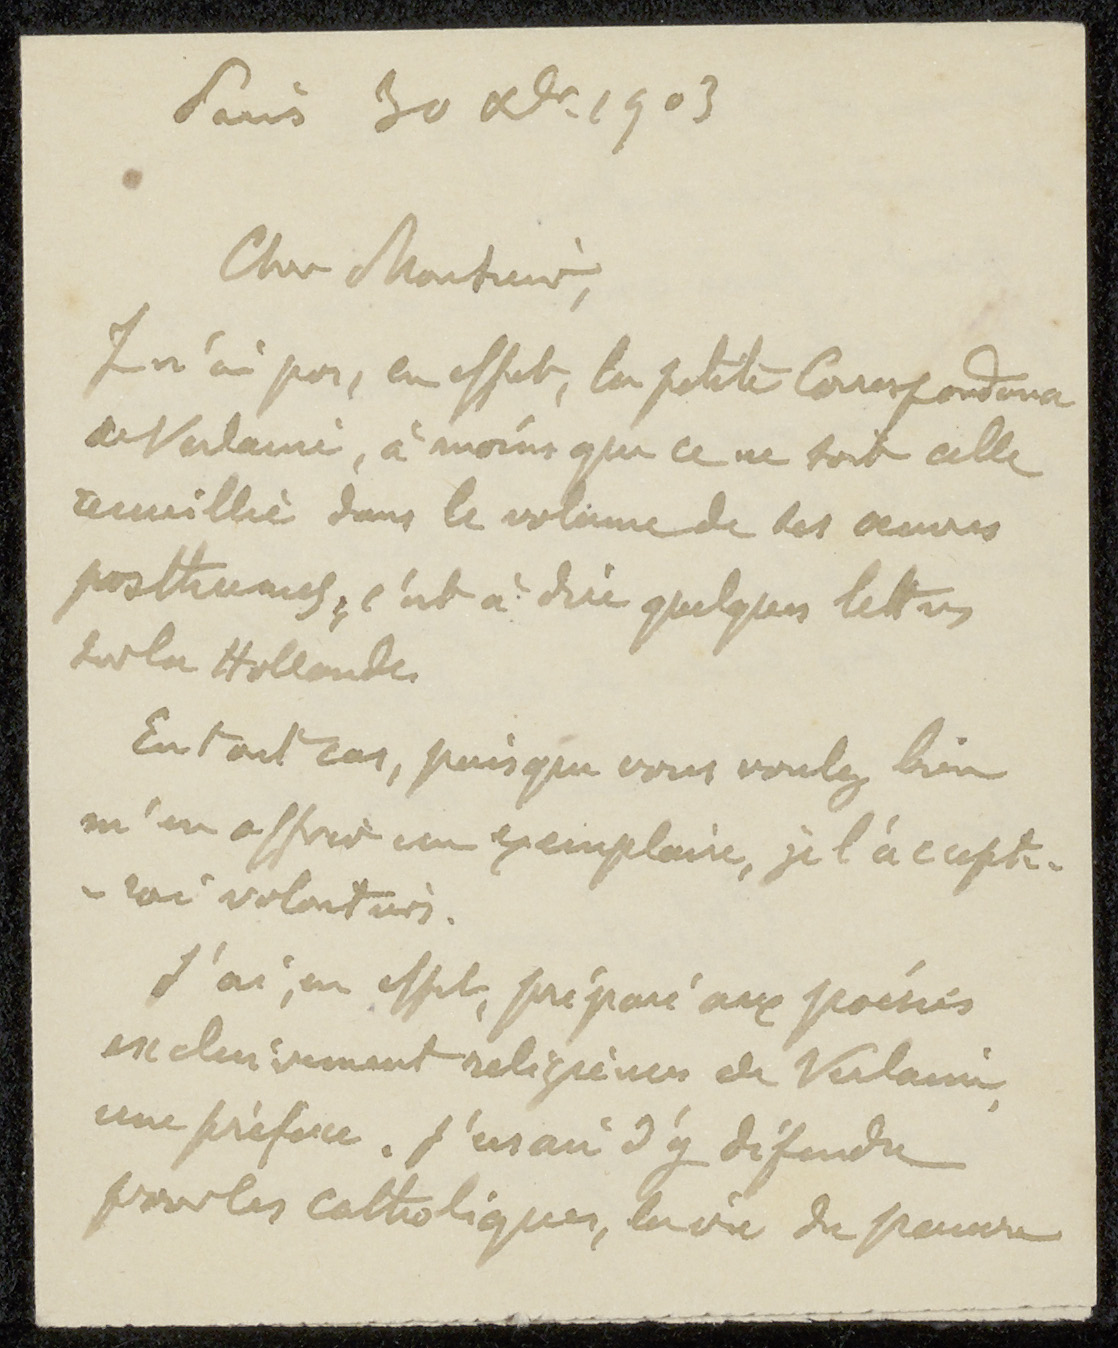 Paris 30 xbr. 1903
Cher Monsieur,
Je n'ai pas, en effet, la petite Correspondance
de Verlaine, à moins que ce ne soit celle
recueillie dans le volume de ses œuvres
posthumes, c'est à dire quelques lettres
sur la Hollande.
En tout cas, puisque vous voulez bien
m'en offrir un exemplaire, je l'accepte-
-rai volontiers.
J'ai, en effet, préparé aux poésies
exclusivement religieuses de Verlaine,
une préface. J'essaie d'y défendre
pour les catholiques, la vie du pauvre